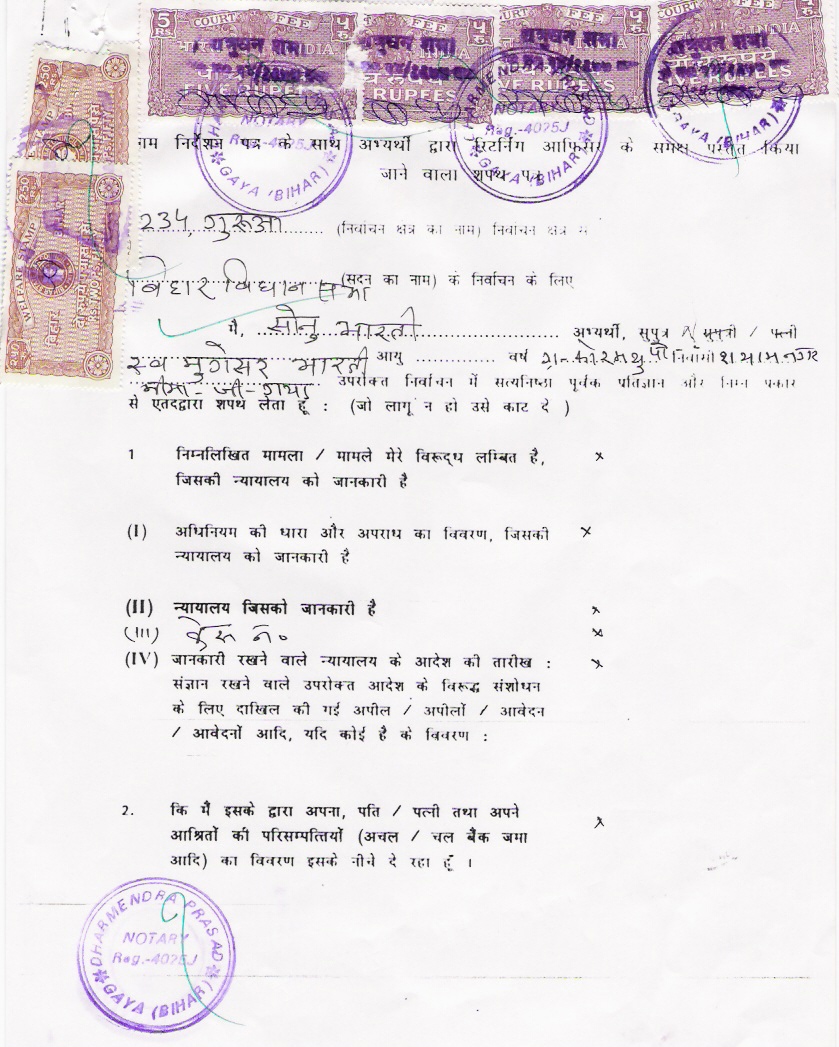 5 RS. COURT FEE ५ रु. COURT FEE ५ रु. COURT FEE ५ रु. FEE
भारत INDIA
शत्रुघन शर्मा शत्रुघन शर्मा शत्रुघन शर्मा
FIVE RUPEES RUPEES FIVE RUPEES RUPEES
NOTARY
Reg.-4075J
GAYA (BIHAR)
DHARMENDRA
NOTARY
Reg.-4075J
GAYA (BIHAR)
GAYA (BIHAR)
2.50
WELFARE STAMP
बिहार
नाम निर्देशन पत्र के साथ अभ्यर्थी द्वारा रिटर्निंग आफिसर के समक्ष प्रस्तुत किया
जाने वाला शपथ पत्र
234, गुरूआ (निर्वाचन क्षेत्र का नाम) निर्वाचन क्षेत्र से
बिहार विधान सभा (सदन का नाम) के निर्वाचन के लिए
मै, सोनु भारती अभ्यर्थी, सुपुत्र / सुपुत्री / पत्नी
स्व मुगेसर भारती आयु ............... वर्ष निवासी श्यामनगर
उपरोक्त निर्वाचन में सत्यनिष्ठा पूर्वक प्रतिज्ञान और निम्न प्रकार
से एतदद्वारा शपथ लेता हूँ : (जो लागू न हो उसे काट दे )
1 निम्नलिखित मामला / मामले मेरे विरूद्ध लम्बित है, ×
जिसकी न्यायालय को जानकारी है
(I) अधिनियम की धारा और अपराध का विवरण, जिसकी ×
न्यायालय को जानकारी है
(II) न्यायालय जिसको जानकारी है ×
(III) केस नं० ×
(IV) जानकारी रखने वाले न्यायालय के आदेश की तारीख : ×
संज्ञान रखने वाले उपरोक्त आदेश के विरूद्ध संशोधन
के लिए दाखिल की गई अपील / अपीलों / आवेदन
/ आवेदनों आदि, यदि कोई है के विवरण :
2. कि मैं इसके द्वारा अपना, पति / पत्नी तथा अपने ×
आश्रितों की परिसम्पत्तियों (अचल / चल बैंक जमा
आदि) का विवरण इसके नीचे दे रहा हूँ ।
DHARMENDRA PRASAD
NOTARY
Reg.-4075J
GAYA (BIHAR)